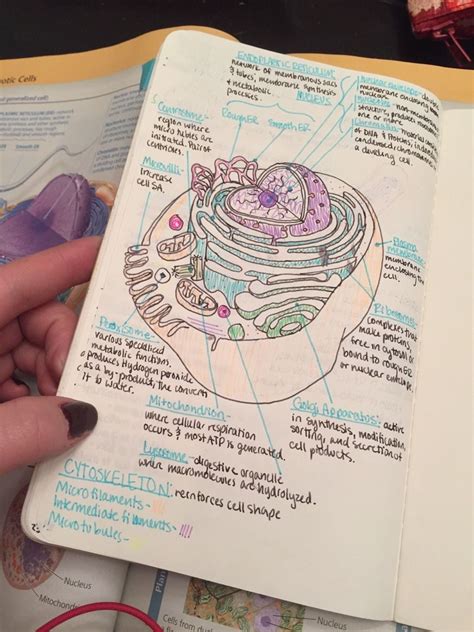 ENDOPLASMIC RETICULUM:
network of membranous sacs
& tubes; membrane synthesis
& metabolic
processes.
Rough ER Smooth ER
NUCLEUS
Nuclear envelope: double
membrane enclosing the
nucleus.
Nucleolus: non-membranous
structure, produces
one or more
Chromatin: material
of DNA & Proteins;
condensed chromosomes in
a dividing cell.
Centrosome:
region where
microtubules are
initiated. Pair of
centrioles.
Microvilli:
Increase
cell SA.
Plasma
membrane:
membrane
enclosing the
cell.
Ribosomes:
complexes that
make proteins,
free in cytosol or
bound to rough ER
or nuclear envelope.
Peroxisome:
various specialized
metabolic functions,
produces Hydrogen peroxide
as a by-product, then convert
it to water.
Mitochondrion:
where cellular respiration
occurs & most ATP is generated.
Golgi Apparatus: active
in synthesis, modification,
sorting, and secretion of
cell products.
Lysosome- digestive organelle
where macromolecules are hydrolyzed.
CYTOSKELETON: reinforces cell shape
Microfilaments-
Intermediate filaments- !!!!
Microtubules-
otic Cells
Nucleus
Mitochon
Nucleus
Cells from du
Plan